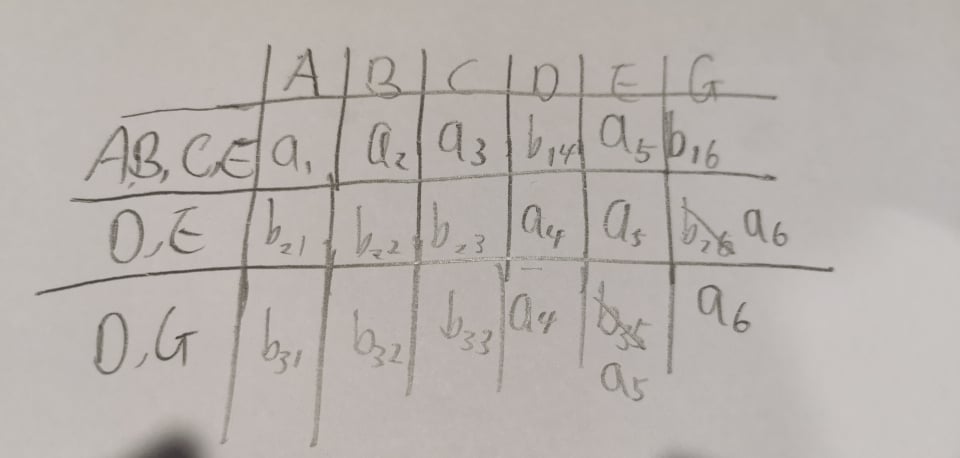 A B C D E G
A,B,C,E a₁ a₂ a₃ b₁₄ a₅ b₁₆
D,E b₂₁ b₂₂ b₂₃ a₄ a₅ b₂₆ a₆
D,G b₃₁ b₃₂ b₃₃ a₄ b₃₅ a₆
a₅